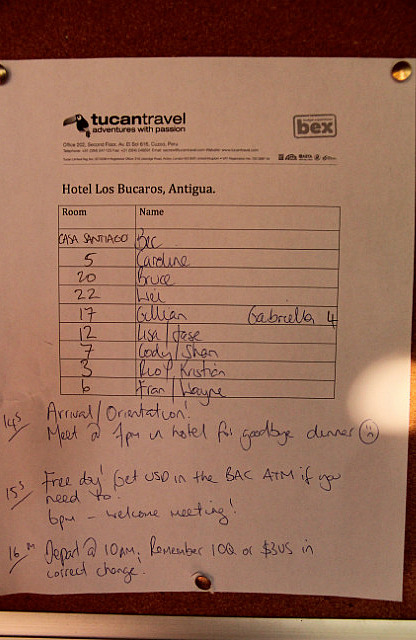 tucantravel
adventures with passion
bex
Office 202, Second Floor, Av. El Sol 616, Cuzco, Peru
Hotel Los Bucaros, Antigua.
Room Name
CASA SANTIAGO Bec
5 Caroline
20 Bruce
22 Wei
17 Gillian Gabriella 4
12 Lisa/Jase
7 Cody/Shan
3 Kristian
6 Fran/Wayne
14S Arrival/Orientation!
Meet @ 7pm in hotel for goodbye dinner
15S Free day! Get USD in the BAC ATM if you
need to!
6pm - welcome meeting!
16M Depart @ 10AM. Remember 10Q or $3US in
correct change.